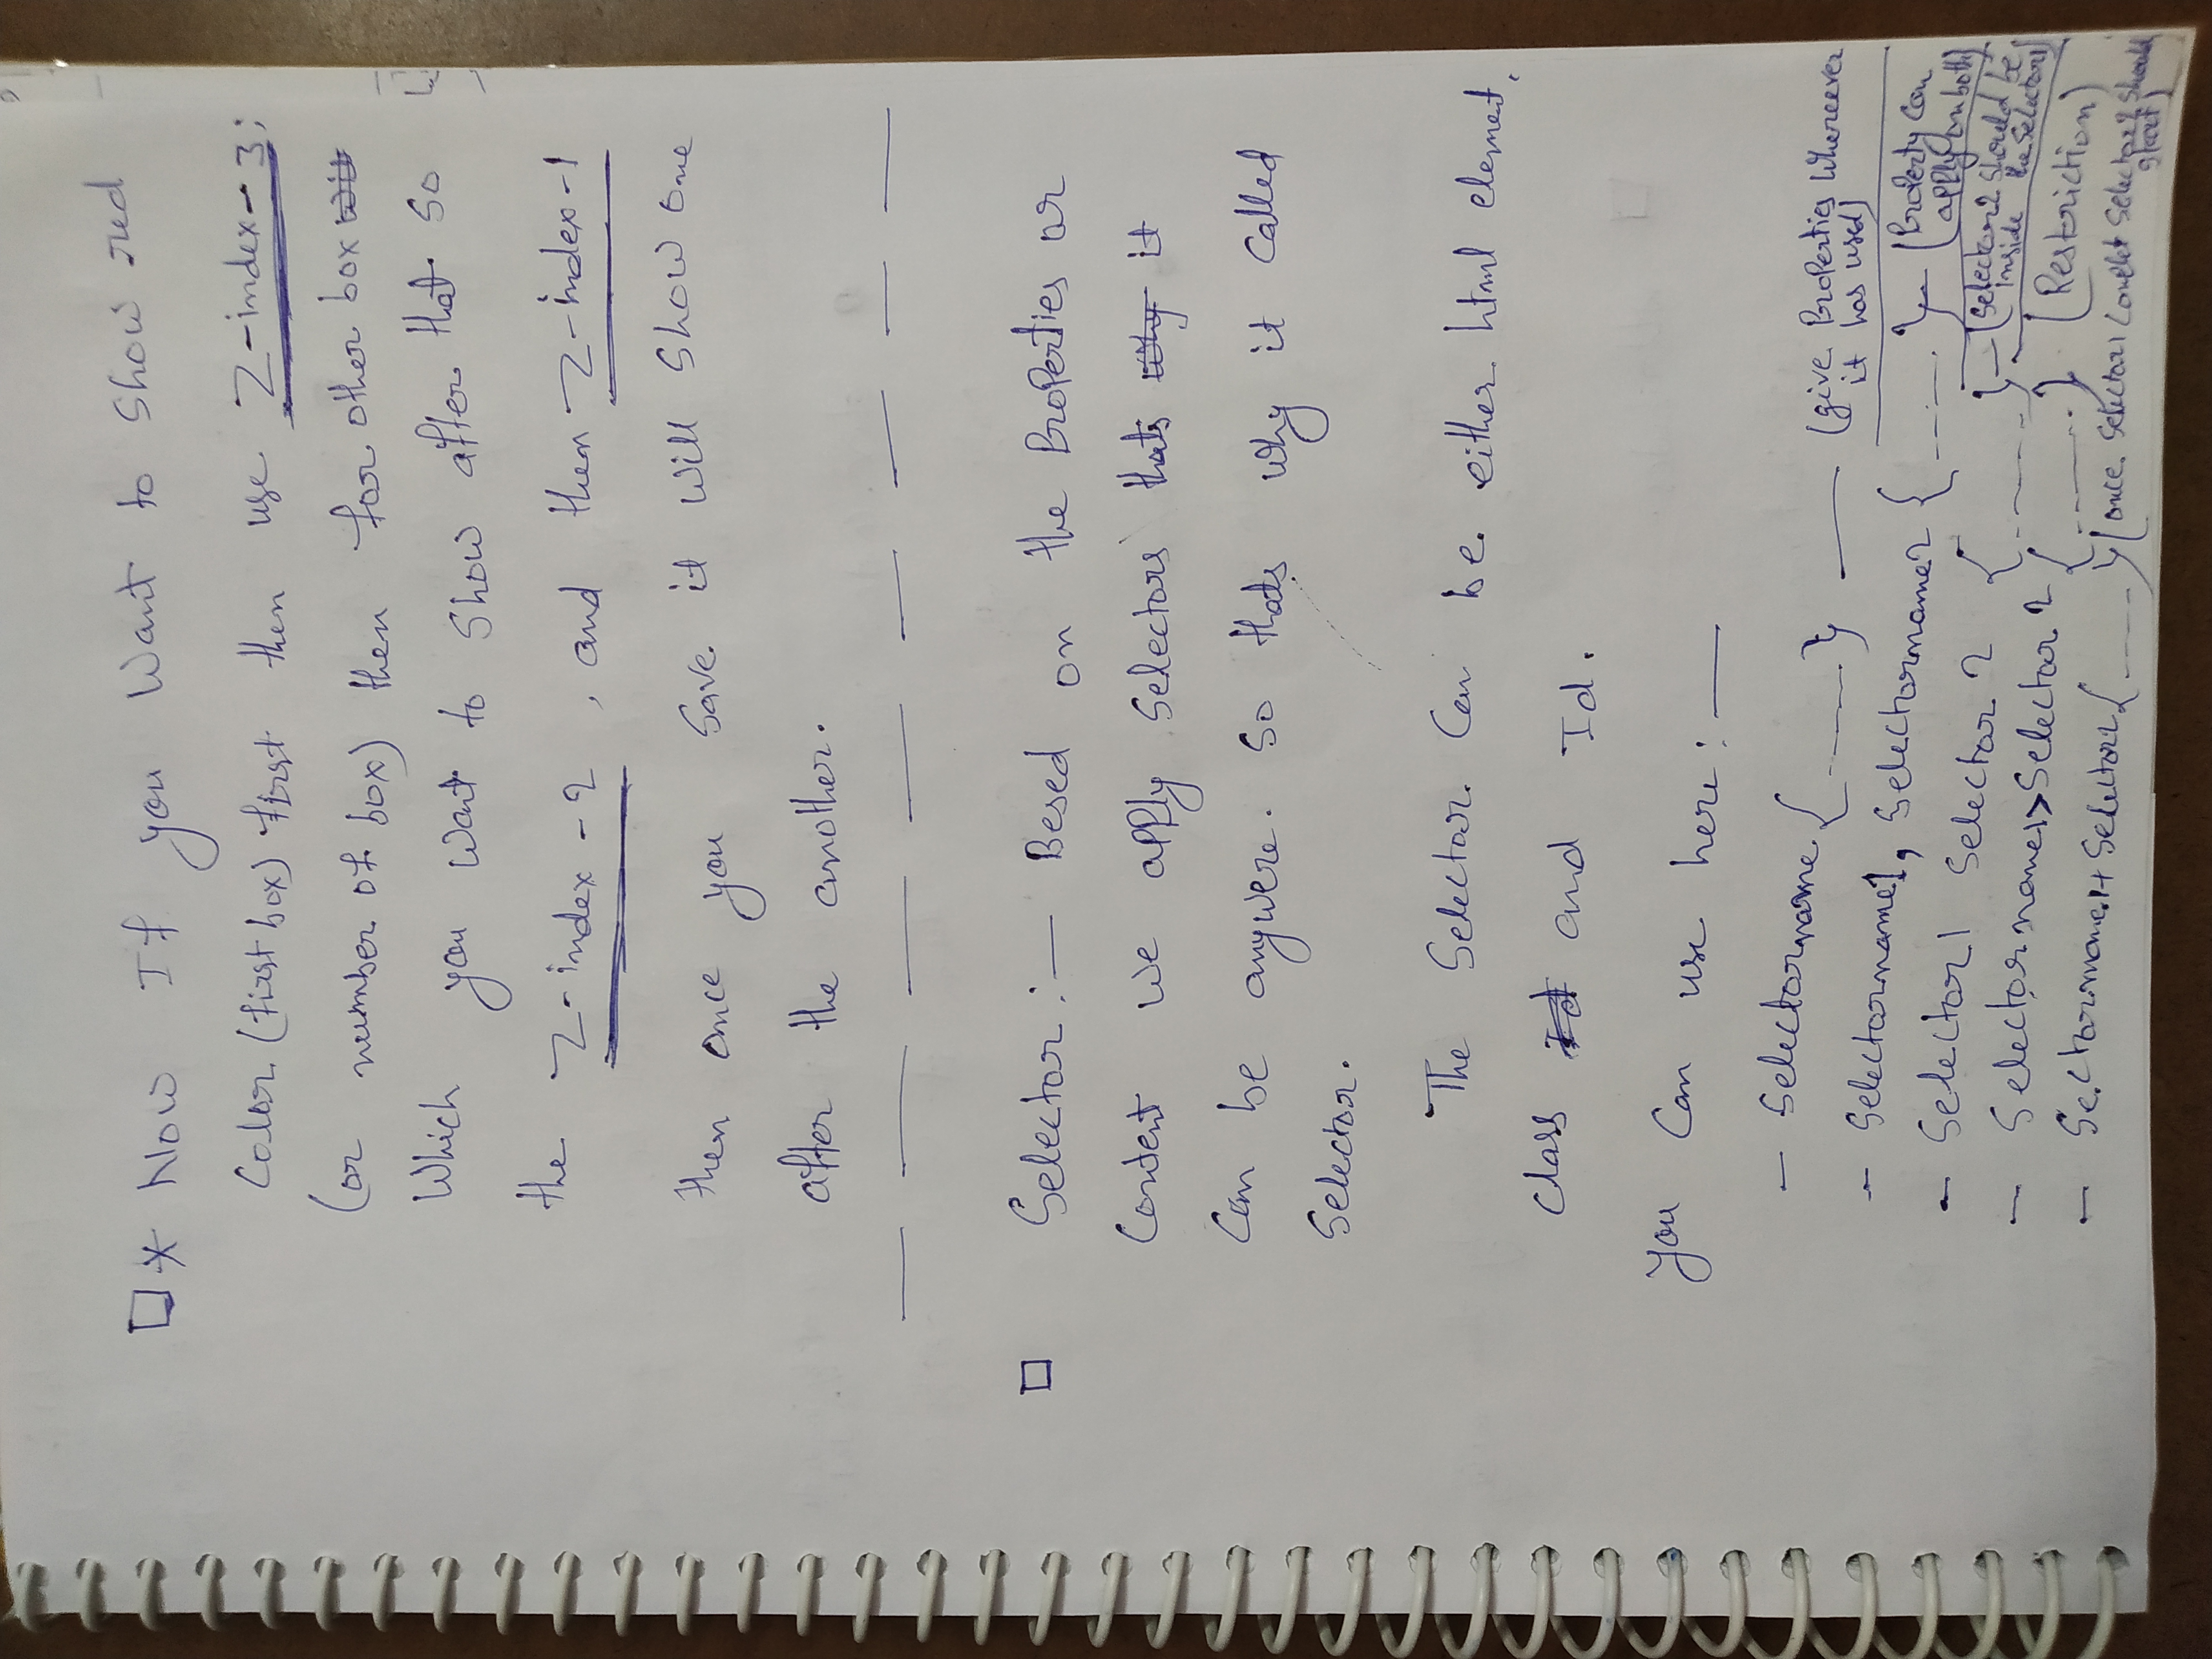 * Now If you want to show red
Color (first box) first then use Z-index-3;
(or number of box) then for other box
which you want to show after that so
the Z-index-2, and then Z-index-1
then once you save it will show one
after the another.
Selector :- Besed on the Properties or
Content we apply Selectors thats it
Can be anywere. So thats why it called
Selector.
The Selector Can be either html element,
class and Id.
you can use here :-
- Selectorname { ---- } — (give Properties whereever
it has used)
- Selectorname1, Selectorname2 { ---- } - (Property Can
apply on both)
- Selector1 Selector2 { ---- } - (Selector2 should be
inside the Selector1)
- Selectorname1>Selector2 { ---- } (Restriction)
- Selectorname1+Selector2 { ---- } (once Selector1 Complet Selector2 should
start)